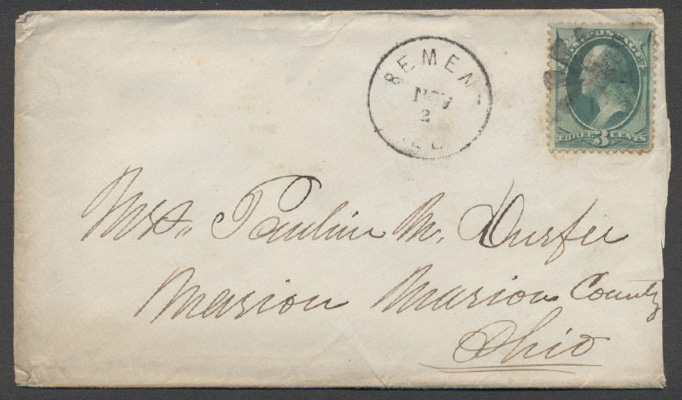 BEMENT
NOV
2
ILL
POSTAGE
THREE 3 CENTS
Mrs. Pauline M. Durfee
Marion Marion County
Ohio